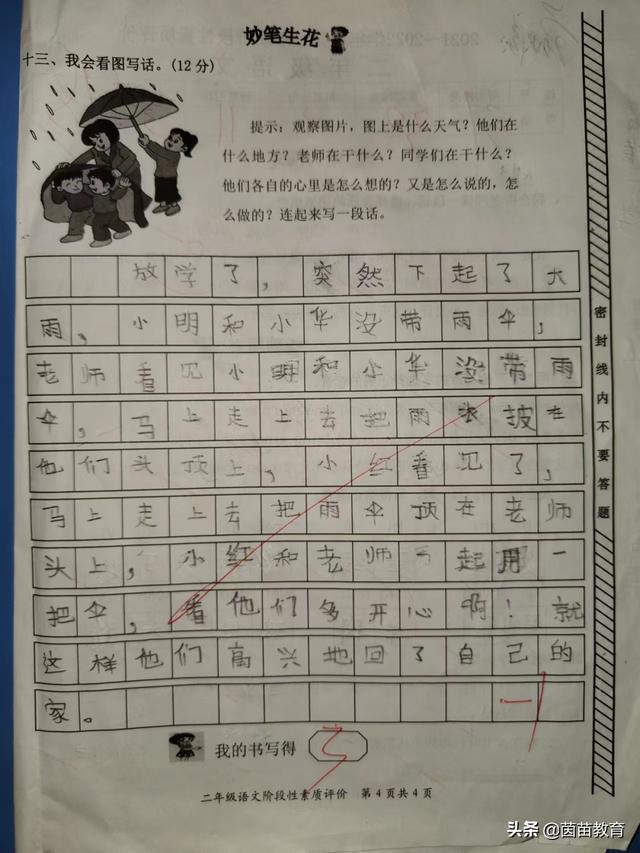 妙笔生花
十三、我会看图写话。(12分)
提示：观察图片，图上是什么天气？他们在
什么地方？老师在干什么？同学们在干什么？
他们各自的心里是怎么想的？又是怎么说的，怎
么做的？连起来写一段话。
放学了，突然下起了大
雨，小明和小华没带雨伞，
老师看见小明和小华没带雨
伞，马上走上去把雨衣披在
他们头顶上，小红看见了，
马上走上去把雨伞顶在老师
头上，小红和老师一起用一
把伞，看他们多开心啊！就
这样他们高兴地回了自己的
家。
-1
我的书写得
3
二年级语文阶段性素质评价 第4页共4页
密封线内不要答题
头条 @茵苗教育